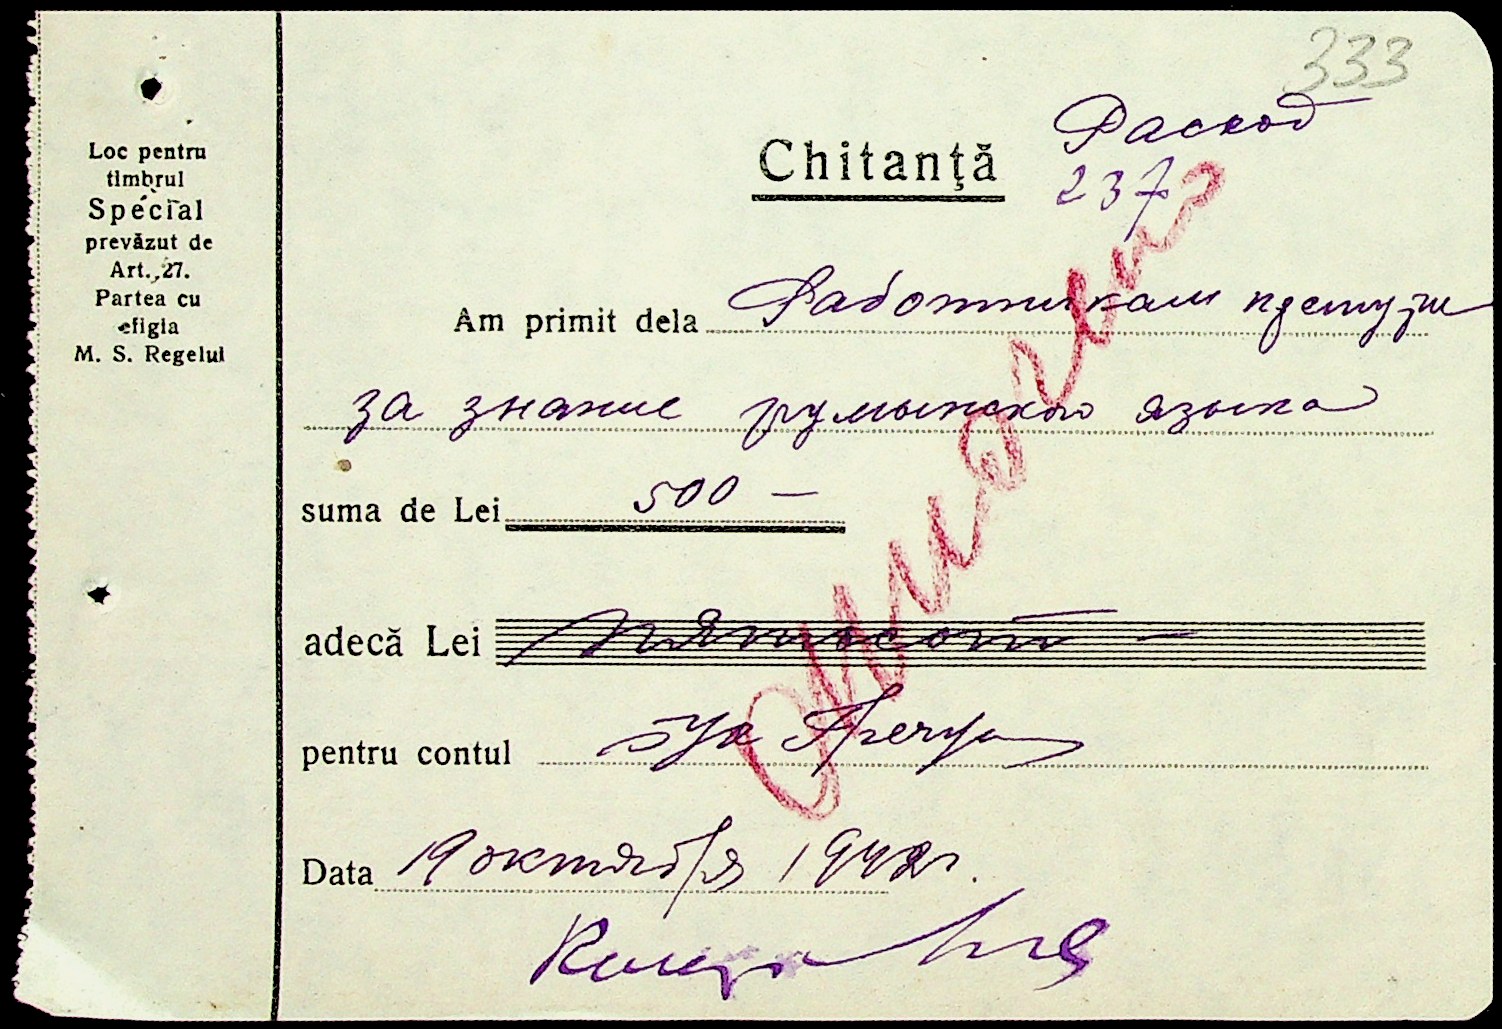 333
Loc pentru
timbrul
Special
prevăzut de
Art. 27.
Partea cu
efigia
M. S. Regelui
Chitanţă
Расход
237
Am primit dela Работникам премузи
за знание румынского языка
suma de Lei 500 —
adecă Lei Пятьсот —
pentru contul
Data 19 октября 1942 г.